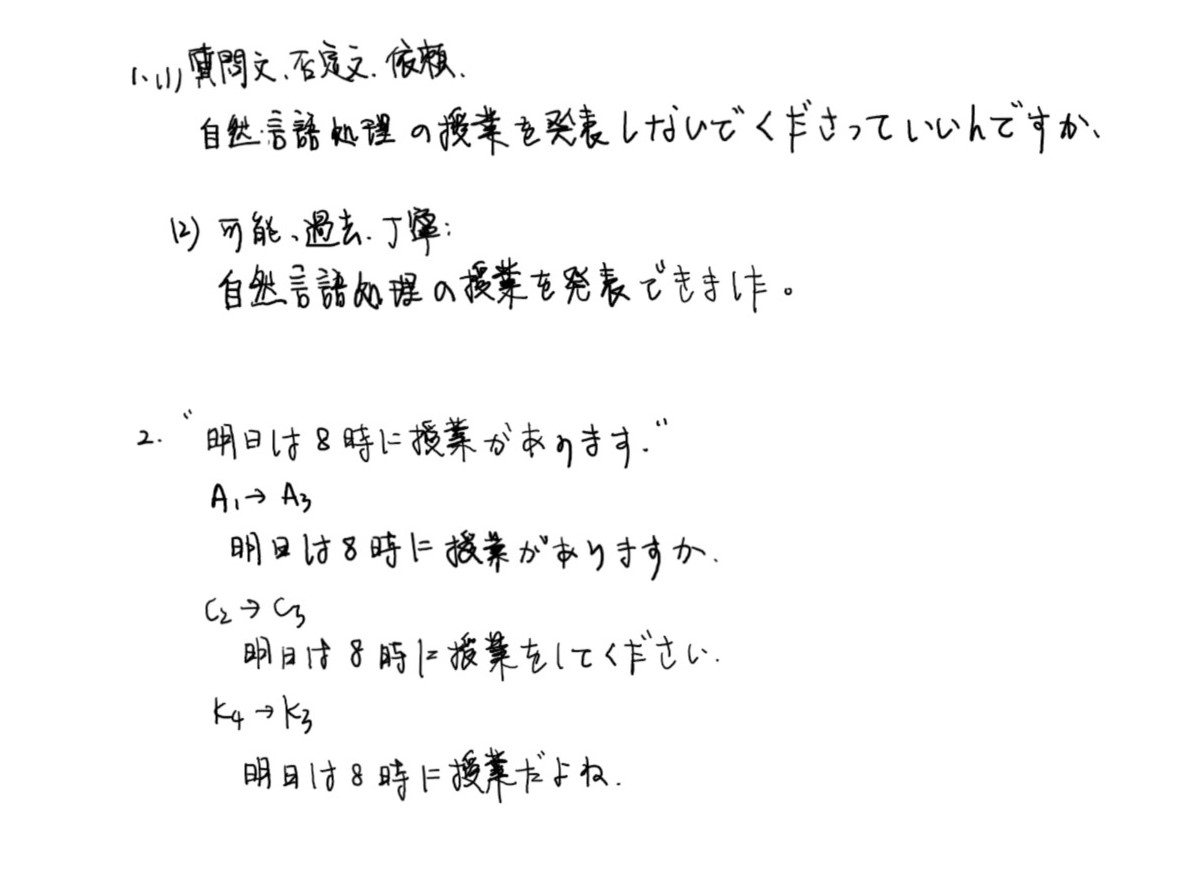 1. (1) 質問文、否定文、依頼.
自然言語処理の授業を発表しないでくださっていいんですか、
(2) 可能、過去、丁寧:
自然言語処理の授業を発表できました。
2. "明日は8時に授業があります."
A1→A3
明日は8時に授業がありますか.
C2→C3
明日は8時に授業をしてください.
K4→K3
明日は8時に授業だよね.